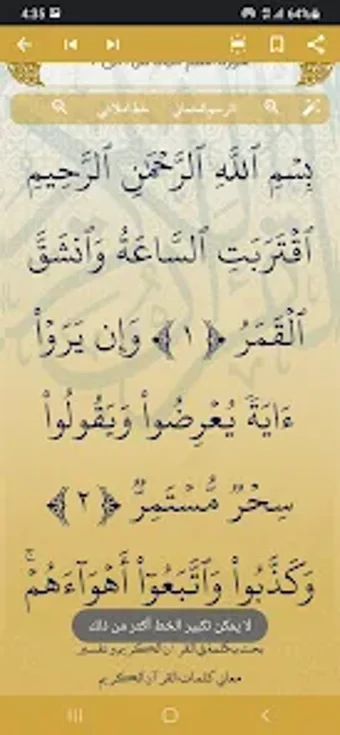 4:35
64%
الرسم العثماني خط املائي
بِسْمِ ٱللَّهِ ٱلرَّحْمَٰنِ ٱلرَّحِيمِ
ٱقْتَرَبَتِ ٱلسَّاعَةُ وَٱنشَقَّ
ٱلْقَمَرُ ﴿١﴾ وَإِن يَرَوْا۟
ءَايَةًۭ يُعْرِضُوا۟ وَيَقُولُوا۟
سِحْرٌۭ مُّسْتَمِرٌّۭ ﴿٢﴾
وَكَذَّبُوا۟ وَٱتَّبَعُوٓا۟ أَهْوَآءَهُمْ ۚ
لا يمكن تكبير الخط أكثر من ذلك
بحث بكلمة في القرآن الكريم و تفسير
معاني كلمات القرآن الكريم